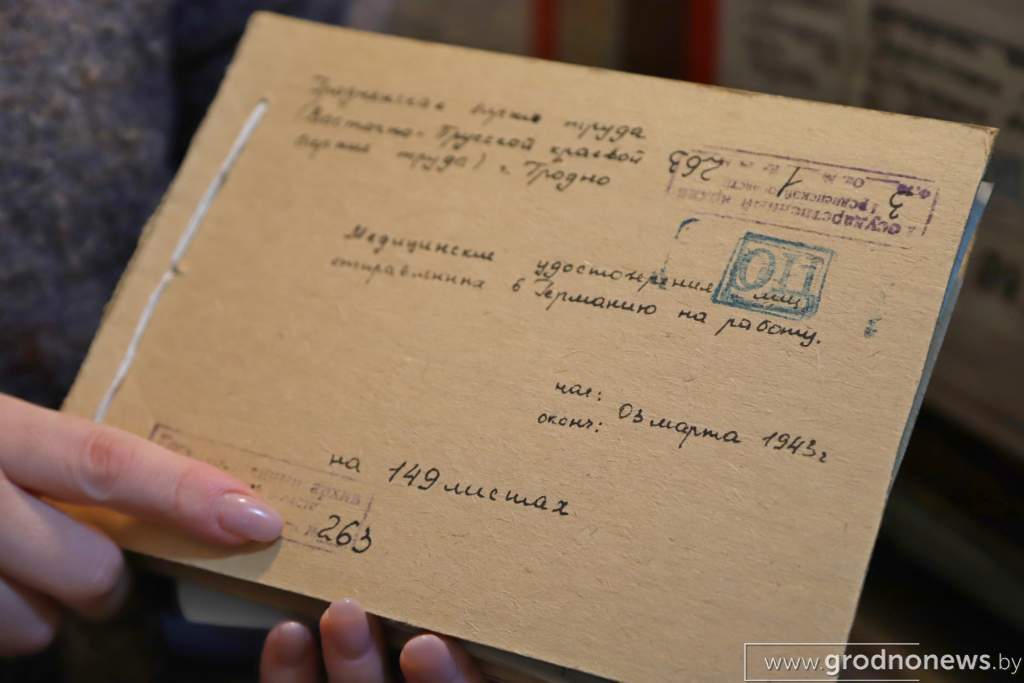 Гродненская биржа труда
(Восточно-Прусской краевой
биржи труда) г. Гродно
263
Оп. № 1
Ф. № 3
Государственный архив
Гродненской области
ПО
Медицинские удостоверения лиц,
отправленных в Германию на работу.
нач: 03 марта 1943г
оконч:
на 149 листах
архив
263
www.grodnonews.by